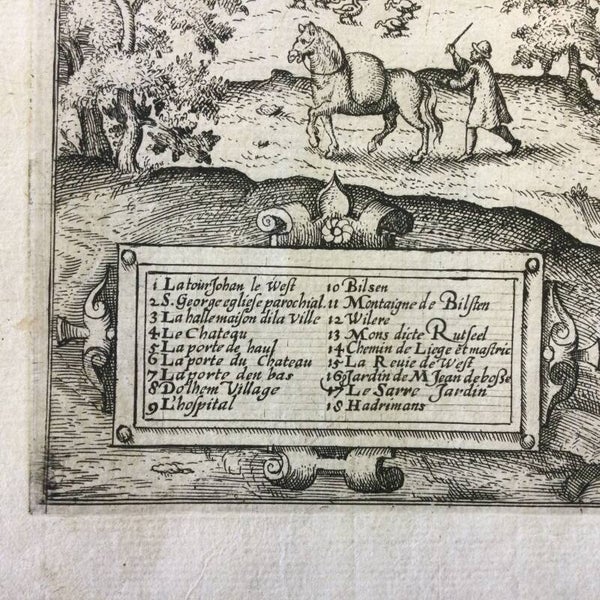 1 La tour Johan le West
2 S. George egliese parochial.
3 La halle maison di la Ville
4 Le Chateau
5 La porte de haul
6 La porte du Chateau
7 La porte den bas
8 Dothem Village
9 L'hospital
10 Bilsen
11 Montaigne de Bilsten
12 Wilere
13 Mons dicte Rutseel
14 Chemin de Liege et mastric
15 La Reuie de West
16 Jardin de M Jean de bosse
17 Le Sarre Jardin
18 Hadrimans